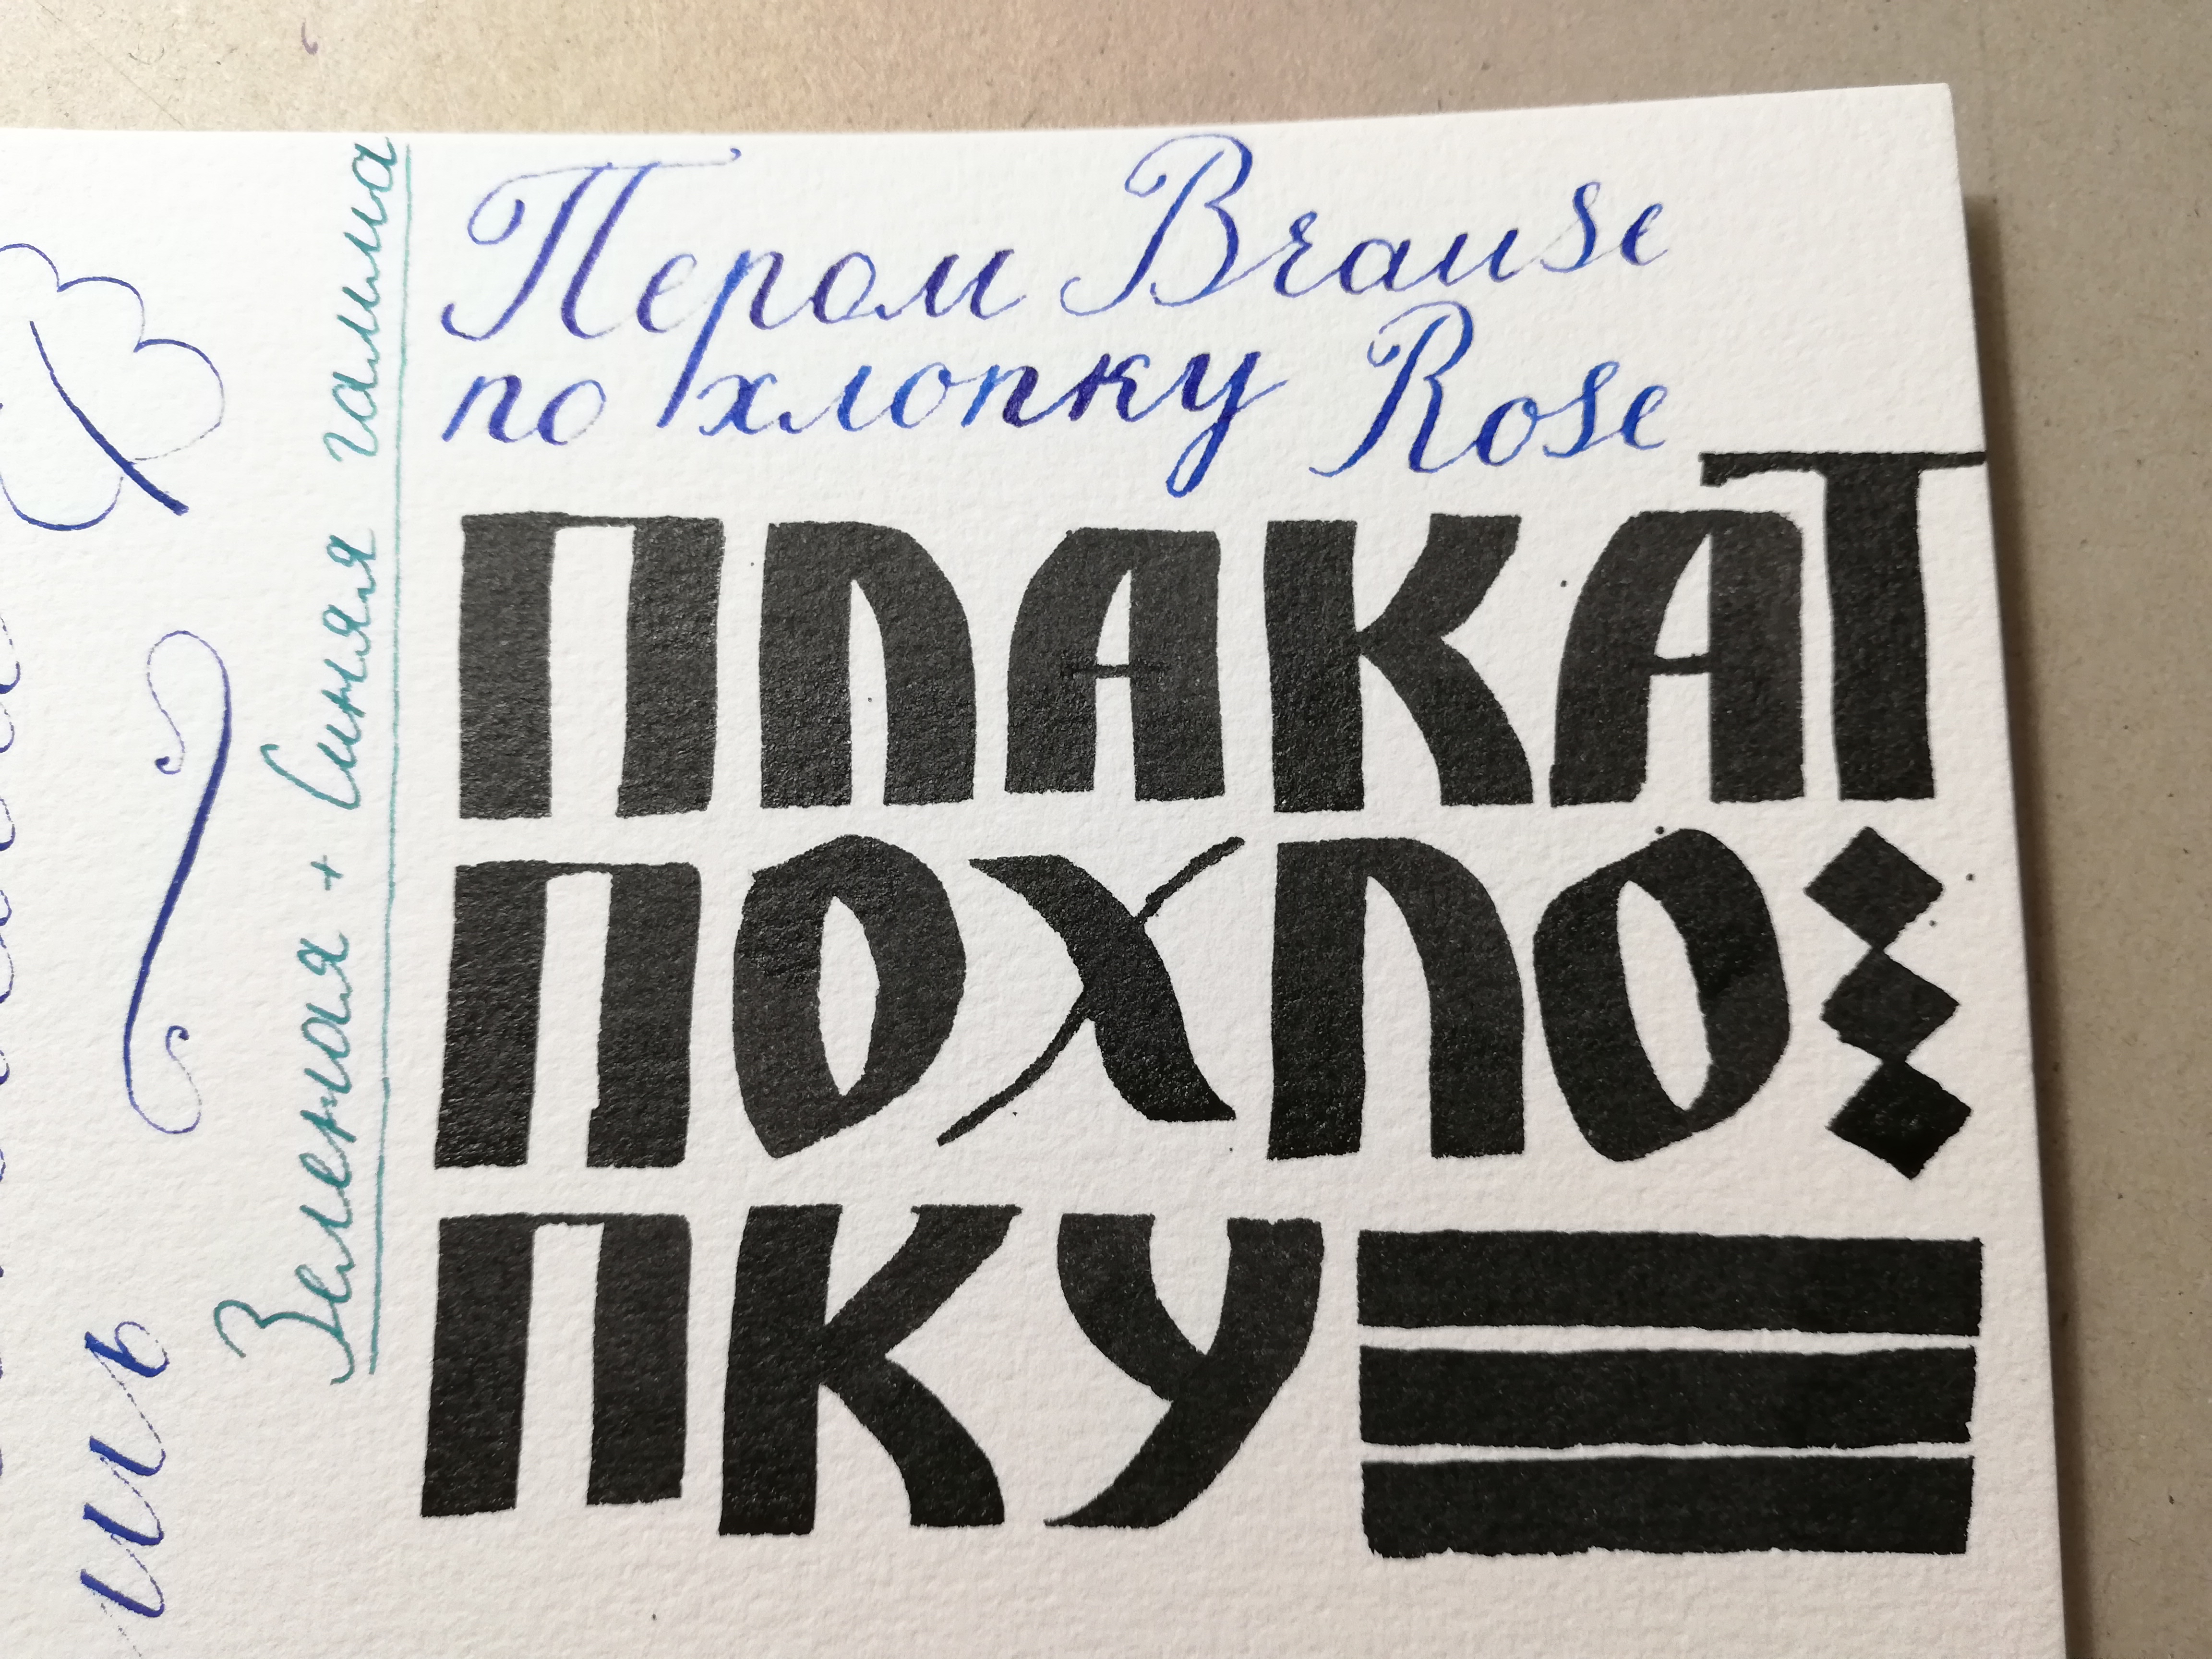 Пером Brause
по хлопку Rose
ПЛАКАТ
ПО ХЛО
ПКУ
Зеленая + Синяя гамма